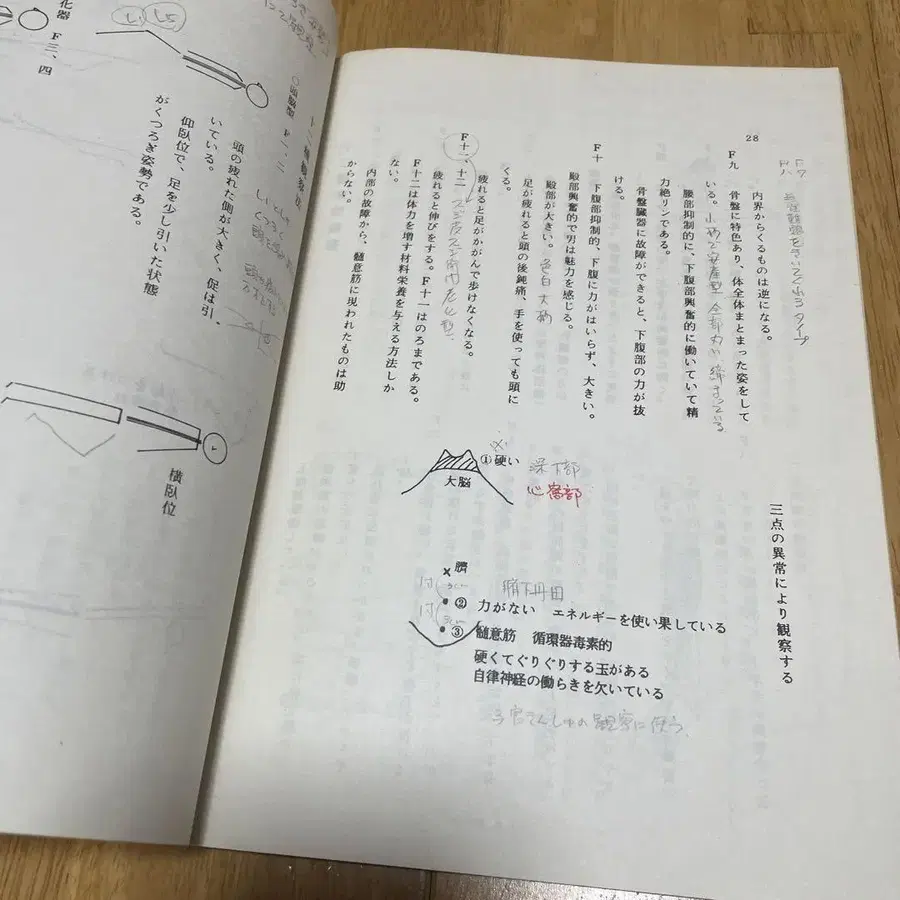 28
内界からくるものは逆になる。
F九　骨盤に特色あり、体全体まとまった姿をして
いる。
腰部抑制的に、下腹部興奮的に働いていて精
力絶リンである。
骨盤臓器に故障ができると、下腹部の力が抜
ける。
F十　下腹部抑制的、下腹に力がはいらず、大きい。
殿部興奮的で男は魅力を感じる。
殿部が大きい。色白大柄
足が疲れると頭の後鈍痛、手を使っても頭に
くる。
F十一、十二　疲れると足がかがんで歩けなくなる。
疲れると伸びをする。F十一はのろまである。
F十二は体力を増す材料栄養を与える方法しか
ない。
内部の故障から、髄意筋に現われたものは助
からない。
三点の異常により観察する
①硬い
大脳
深下部
心窩部
臍
臍下丹田
② 力がない　エネルギーを使い果している
③ 髄意筋　循環器毒素的
硬くてぐりぐりする玉がある
自律神経の働らきを欠いている
化器　F三、四
L5
○頭脳型　F一、二
頭の疲れた側が大きく、促は引
いている。
仰臥位で、足を少し引いた状態
がくつろぎ姿勢である。
横臥位